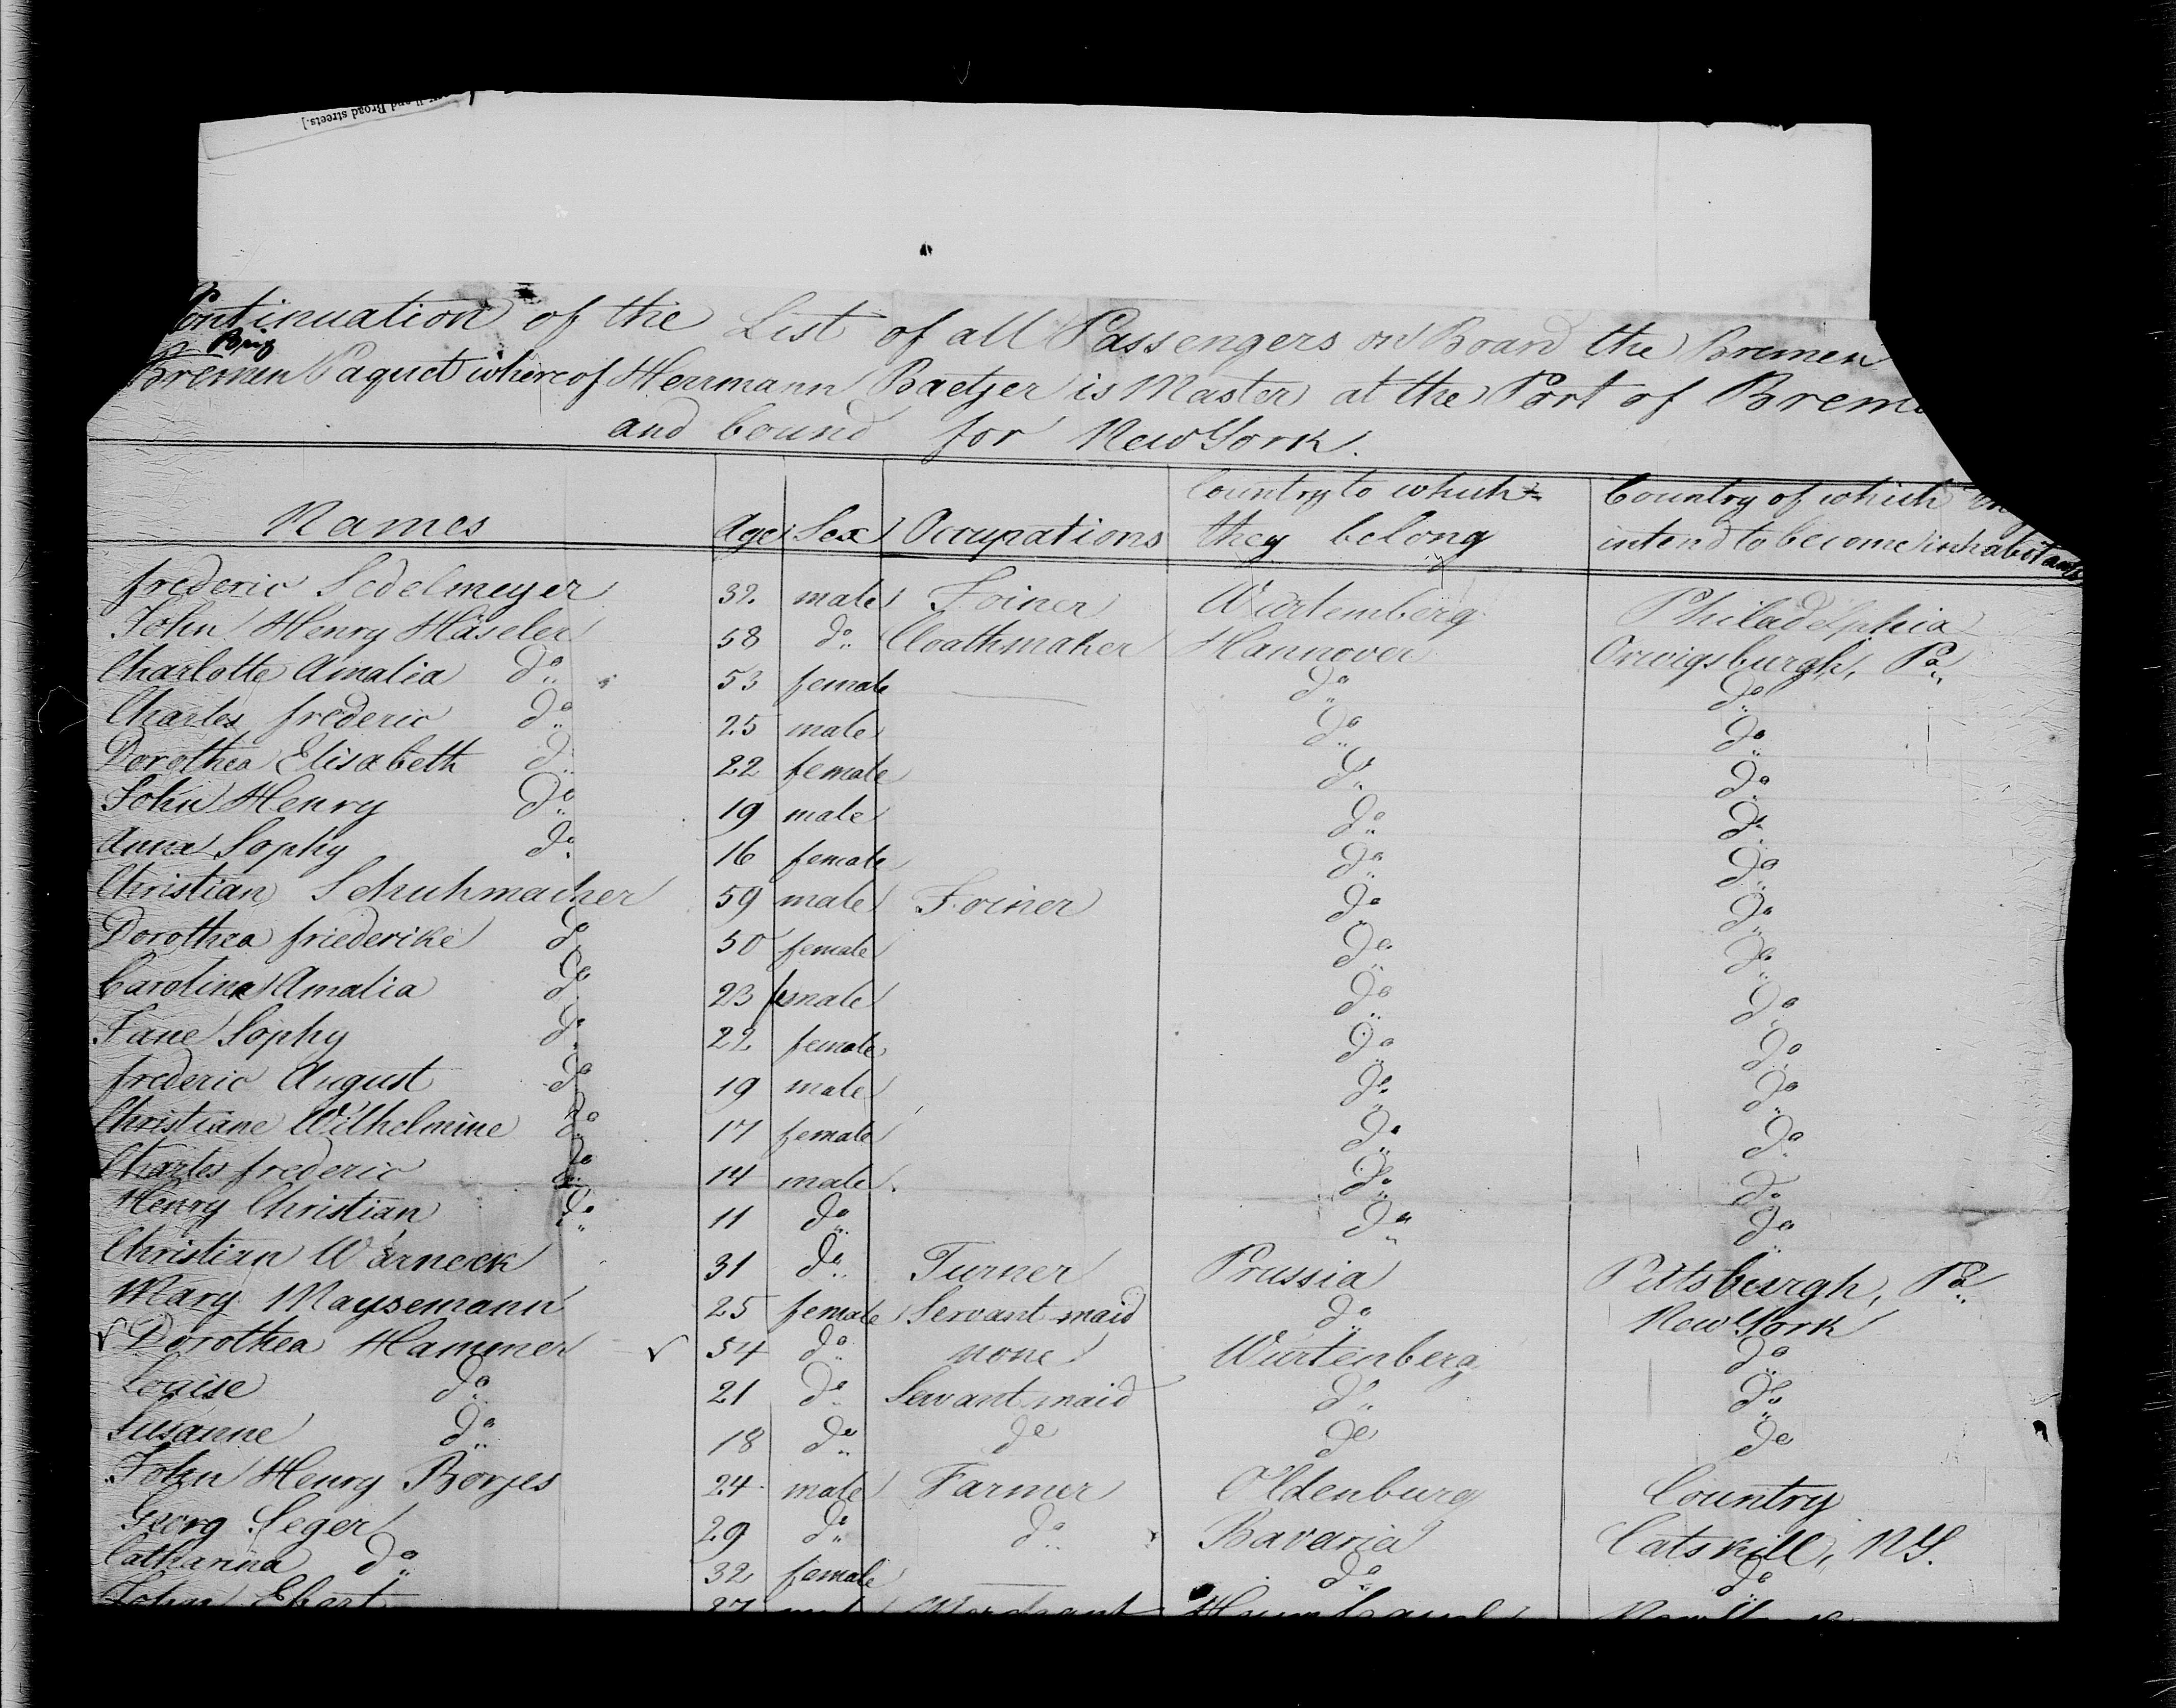 Wall and Broad streets.]
Continuation of the List of all Passengers on Board the Bremen
Brig
Bremen Paquet whereof Herrmann Baetjer is Master at the Port of Breme
and bound for New York.
Names Age Sex Occupations Country to which they belong Country of which intend to become inhabitants
frederic Sedelmeyer 32. male Joiner Würtemberg Philadelphia
John Henry Häseler 58 do Cloathmaker Hannover Orwigsburgh, Pa
Charlotte Amalia do 53 female — do do
Charles frederic do 25 male do do
Dorothea Elisabeth do 22 female do do
John Henry do 19 male do do
Anna Sophy do 16 female do do
Christian Schuhmacher 59 male Joiner do do
Dorothea friederike do 50 female do do
Carolina Amalia do 23 female do do
Jane Sophy do 22 female do do
frederic August do 19 male do do
Christiane Wilhelmine do 17 female do do
Charles frederic do 14 male do do
Henry Christian do 11 do do do
Christian Warneck 31 do Turner Prussia Pittsburgh, Pa
Mary Maysemann 25 female Servant maid do New York
√ Dorothea Hammer √ 54 do none Würtenberg do
Louise do 21 do Servant maid do do
Susanne do 18 do do do do
John Henry Borjes 24 male Farmer Oldenburg Country
Georg Seger 29 do do Bavaria Catskill, NY.
Catharina do 32 female — do do
John Ebert 27 Merchant